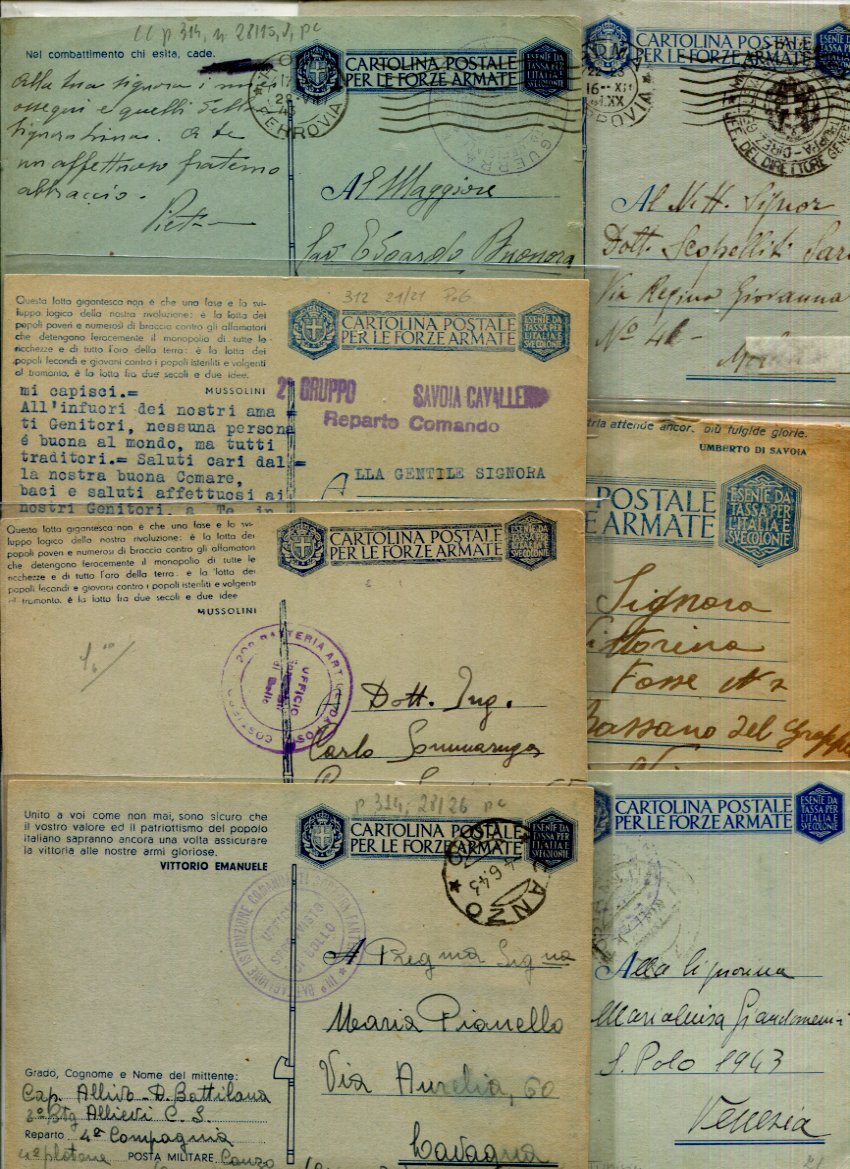 CC p 314, n 28/15, s, pc
Nel combattimento chi esita, cade.
Alla tua signora i miei
ossequi e quelli della
signorinina. A te
un affettuoso fraterno
abbraccio.
CARTOLINA POSTALE
PER LE FORZE ARMATE
ESENTE DA
TASSA PER
L'ITALIA E
SVE COLONIE
FERROVIA
GUERRA
Al Maggiore
Cav. Edoardo Buonora
CARTOLINA POSTALE
PER LE FORZE ARMATE
22-23
16-XII
FERROVIA
DEL DIRETTORE GENER
Al N.H. Signor
Dott. Scopelliti
Via Regina Giovanna
No 41
312 21/21 PoG
Questa lotta gigantesca non è che una fase e lo svi-
luppo logico della nostra rivoluzione: è la lotta dei
popoli poveri e numerosi di braccia contro gli affamatori
che detengono ferocemente il monopolio di tutte le
ricchezze e di tutto l'oro della terra: è la lotta dei
popoli fecondi e giovani contro i popoli isteriliti e volgenti
al tramonto, è la lotta fra due secoli e due idee.
MUSSOLINI
mi capisci.=
All'infuori dei nostri ama
ti Genitori, nessuna persona
é buona al mondo, ma tutti
traditori.= Saluti cari dal=
la nostra buona Comare,
baci e saluti affettuosi ai
nostri Genitori, a Te, in
CARTOLINA POSTALE
PER LE FORZE ARMATE
ESENTE DA
TASSA PER
L'ITALIA E
SVE COLONIE
2° GRUPPO SAVOIA CAVALLERIA
Reparto Comando
ALLA GENTILE SIGNORA
tria attende ancor. più fulgide glorie.
UMBERTO DI SAVOIA
POSTALE
ARMATE
ESENTE DA
TASSA PER
L'ITALIA E
SVE COLONIE
Signora
Vittorina
Fosse No 2
Bassano del Grappa
Questa lotta gigantesca non è che una fase e lo svi-
luppo logico della nostra rivoluzione: è la lotta dei
popoli poveri e numerosi di braccia contro gli affamatori
che detengono ferocemente il monopolio di tutte le
ricchezze e di tutto l'oro della terra: è la lotta dei
popoli fecondi e giovani contro i popoli isteriliti e volgenti
al tramonto, è la lotta fra due secoli e due idee.
MUSSOLINI
CARTOLINA POSTALE
PER LE FORZE ARMATE
ESENTE DA
TASSA PER
L'ITALIA E
SVE COLONIE
BATTERIA ART
UFFICIO
Dott. Ing.
Carlo Sommaruga
p 314, 28/26 pc
Unito a voi come non mai, sono sicuro che
il vostro valore ed il patriottismo del popolo
italiano sapranno ancora una volta assicurare
la vittoria alle nostre armi gloriose.
VITTORIO EMANUELE
CARTOLINA POSTALE
PER LE FORZE ARMATE
ESENTE DA
TASSA PER
L'ITALIA E
SVE COLONIE
4.6.43
CANZO
III° BATTAGLIONE ISTRUZIONE
DI BOLLO
Maria Pianello
Via Aurelia, 60
Lavagna
Grado, Cognome e Nome del mittente:
Cap. Allivo D. Battilana
3° Btg Allievi C. S.
Reparto 4a Compagnia
4° plotone POSTA MILITARE Canzo
CARTOLINA POSTALE
PER LE FORZE ARMATE
ESENTE DA
TASSA PER
L'ITALIA E
SVE COLONIE
Alla Signorina
Marialuisa Giandomenici
S. Polo 1943
Venezia